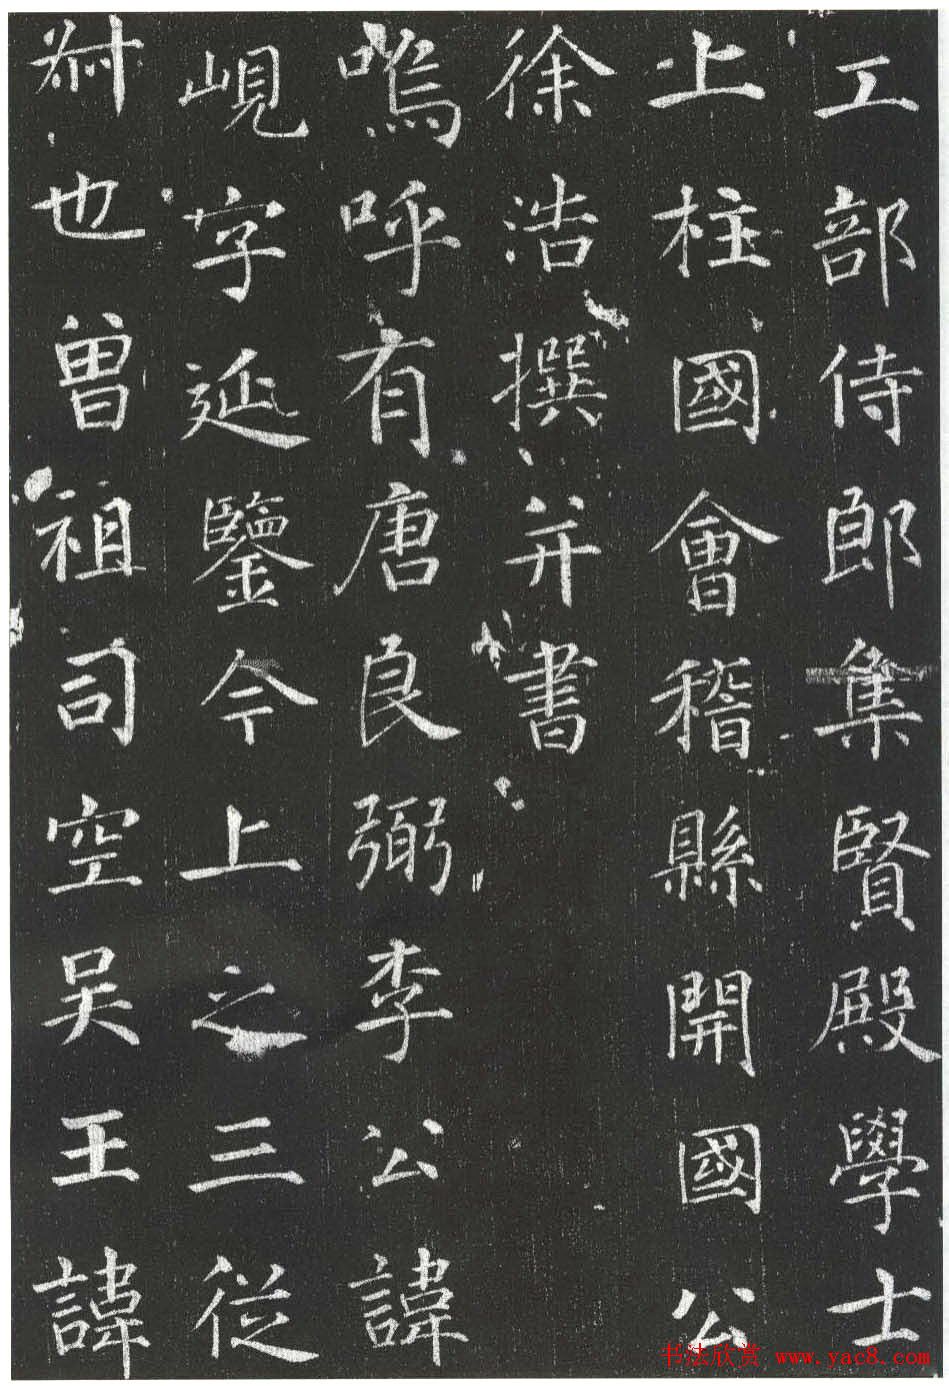 工部侍郎集賢殿學士
上柱國會稽縣開國公
徐浩撰并書
嗚呼有唐良弼李公諱
峴字延鑒今上之三從
叔也曽祖司空吴王諱
书法欣赏 www.yac8.com